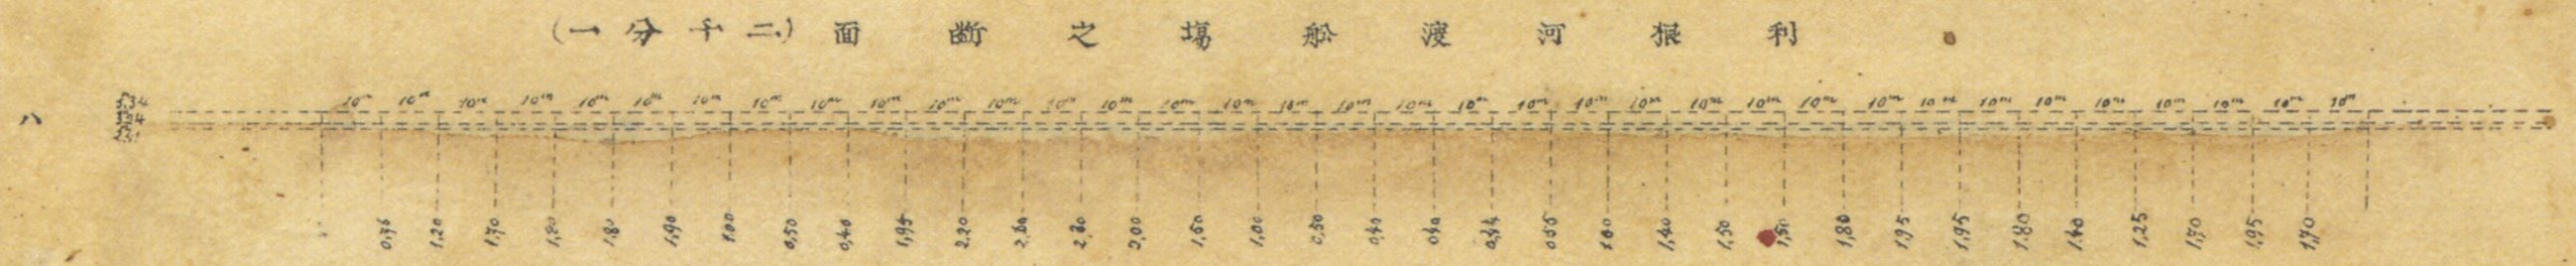 利根河渡舩塲之断面(二千分一)
八
10m 10m 10m 10m 10m 10m 10m 10m 10m 10m 10m 10m 10m 10m 10m 10m 10m 10m 10m 10m 10m 10m 10m 10m 10m 10m 10m 10m 10m 10m 10m 10m 10m 10m 10m
1,20 1,70 1,80 1,90 1.00 0,50 0,40 1,95 2,20 2,60 1,60 1,00 0,50 0,40 1,40 1,50 1,50 1,80 1,95 1,95 1.80 1,40 1,25 1,70 1,95 1,70